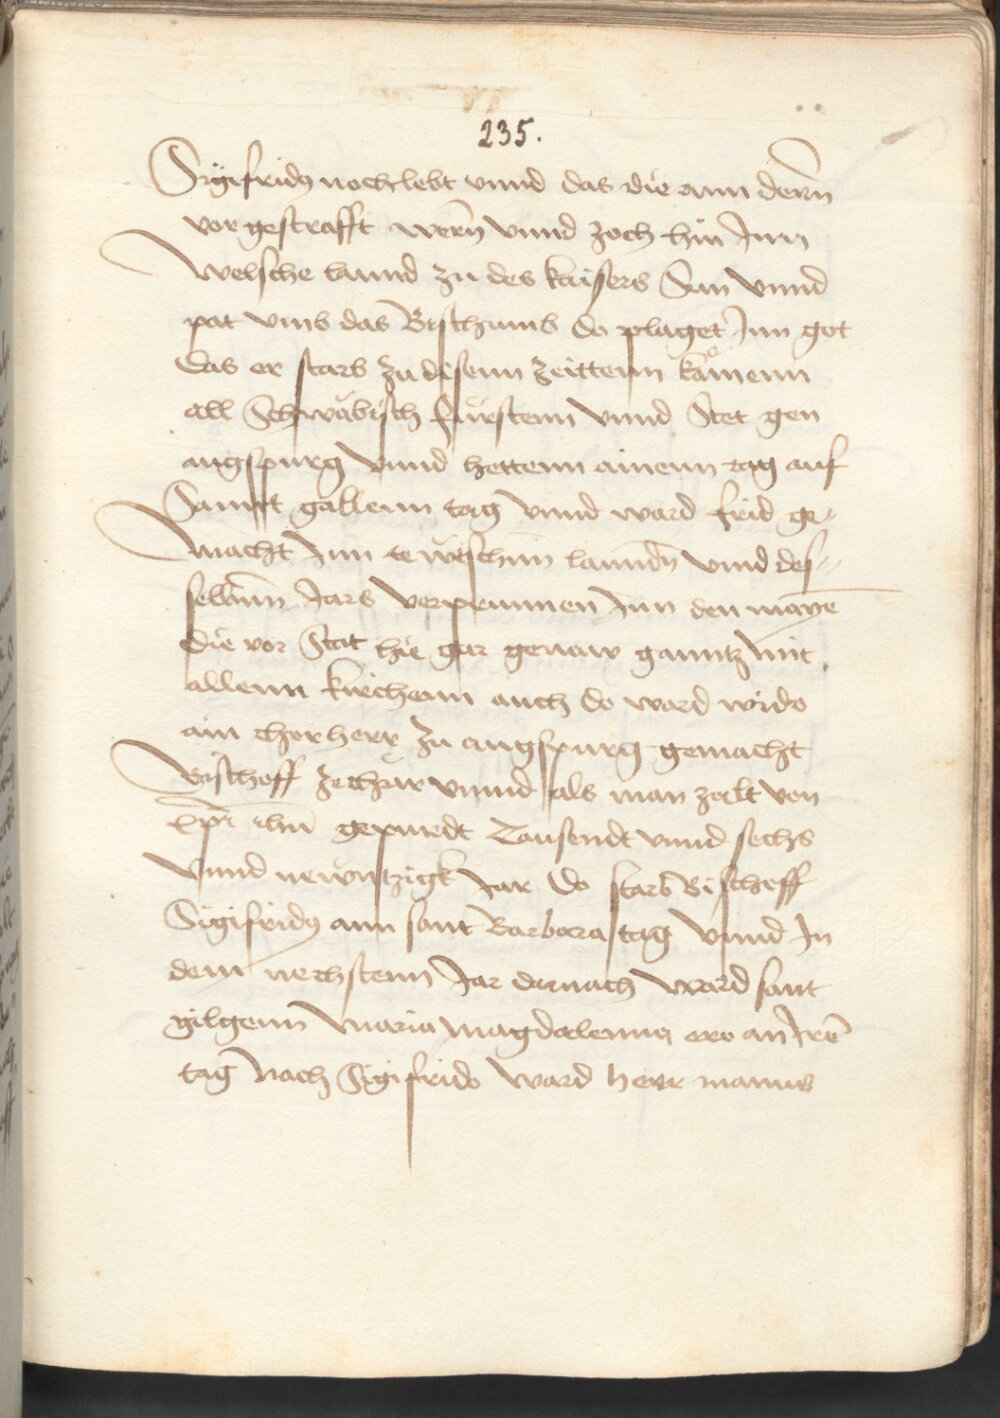 235.
Sigifridꝰ noch lebt vnnd das die ann dern̄
vor gestrafft wern̄ vnnd zoch hin Jnn
welsche lannd zu des kaisers Sun vnnd
pat vmb das Bisthumb do plaget Jnn got
das er starb zu disenn zeittenn kamenn
all Schwäbisch fürstenn vnnd Stet gen
augspurg vnnd hettenn ainenn tag auf
Sannt gallenn tag vnnd ward frid ge-
macht Jnn te wtschnn lanndn̄ vnnd des-
selbnn̄ Jars verprunnen Jnn den maye͞
die vor Stat hie gar genaw ganntz mit
allenn kirchenn auch do ward wido
ain chorherr zu augspurg gemacht
Bischoff ze chur vnnd als man zalt von
xp̄i ihū gepurdt Tausendt vnnd sechs
vnnd newntzigk Jar do starb Bischoff
Sigifridꝰ ann sant Barbara tag vnnd Jn
dem nechstenn Jar darnach ward sant
gilgenn Maria Magdalenna ero an Jrē
tag Nach Sigifrido ward herr mannis